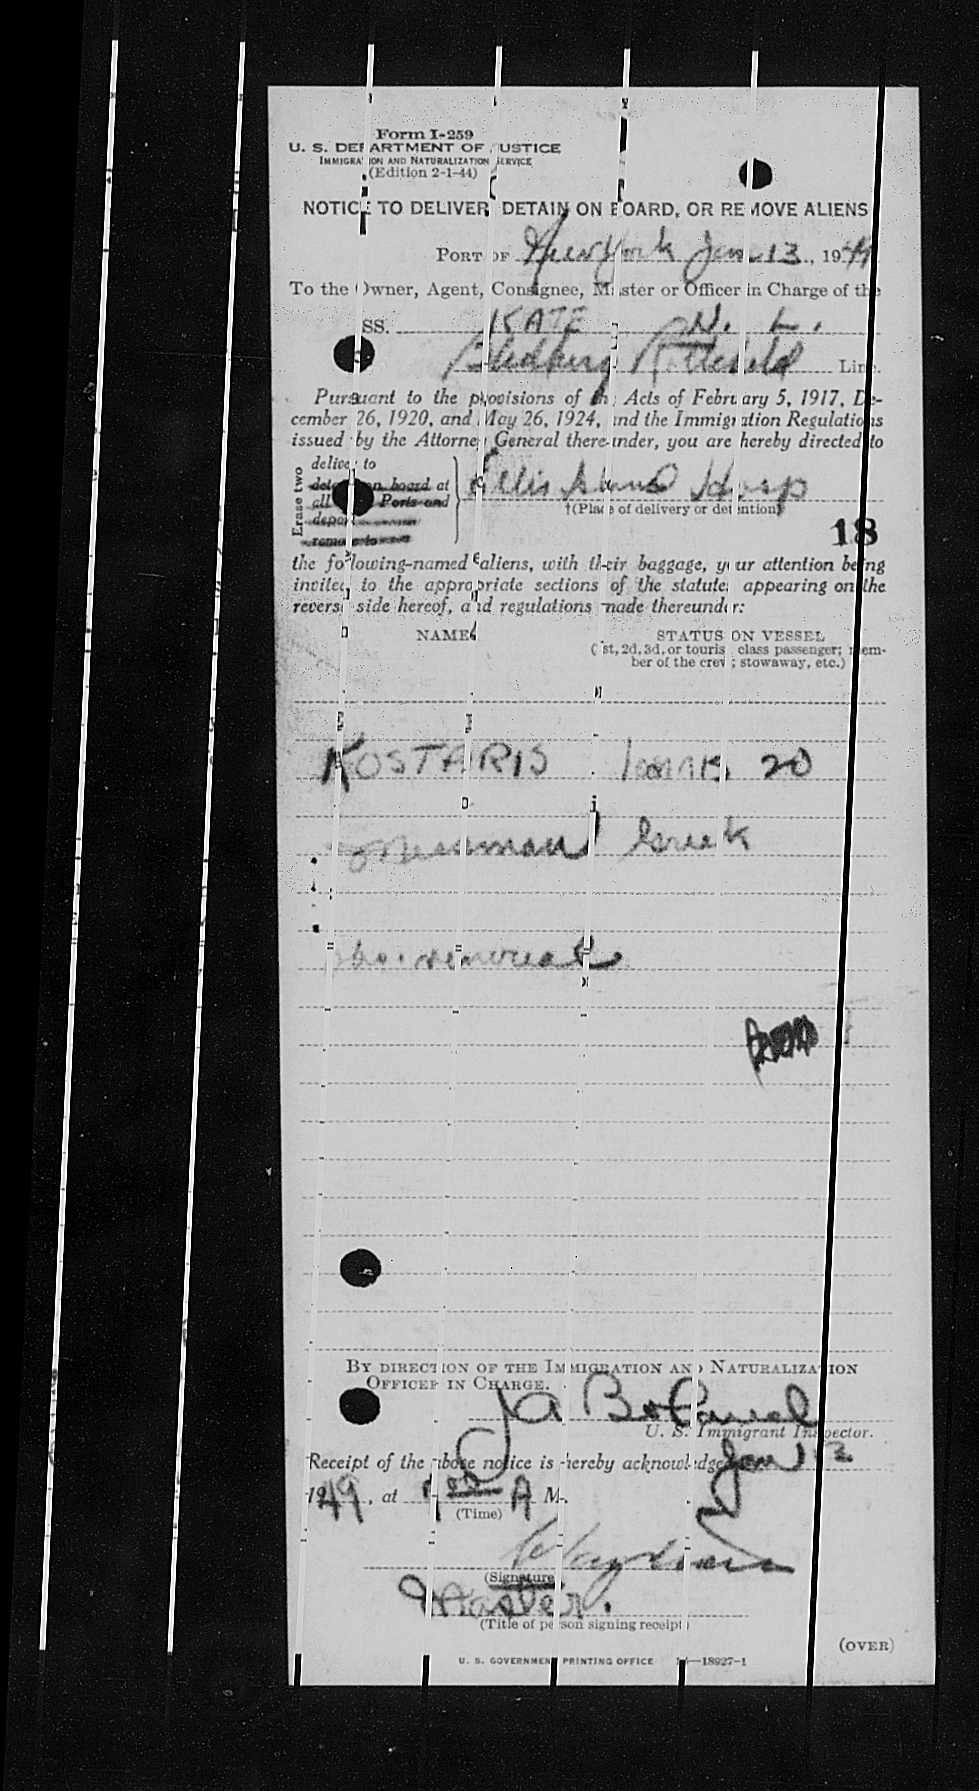 Form I-259
U. S. DEPARTMENT OF JUSTICE
IMMIGRATION AND NATURALIZATION SERVICE
(Edition 2-1-44)
NOTICE TO DELIVER, DETAIN ON BOARD, OR REMOVE ALIENS
PORT OF New York Jan 13, 1949
To the Owner, Agent, Consignee, Master or Officer in Charge of the
SS. KATE N. L.
Line.
Pursuant to the provisions of the Acts of February 5, 1917, De-
cember 26, 1920, and May 26, 1924, and the Immigration Regulations
issued by the Attorney General thereunder, you are hereby directed to
Erase two
deliver to
detain on board at
all Ports and
deport
remove to
Ellis Island Hosp
†(Place of delivery or detention)
18
the following-named aliens, with their baggage, your attention being
invited to the appropriate sections of the statutes appearing on the
reverse side hereof, and regulations made thereunder:
NAMES
STATUS ON VESSEL
(1st, 2d, 3d, or tourist class passenger; mem-
ber of the crew; stowaway, etc.)
KOSTARIS 20
Greek
BY DIRECTION OF THE IMMIGRATION AND NATURALIZATION
OFFICER IN CHARGE.
U. S. Immigrant Inspector.
Receipt of the above notice is hereby acknowledged Jan 13
1949, at A M.
(Time)
(Signature)
Master.
(Title of person signing receipt)
(OVER)
U. S. GOVERNMENT PRINTING OFFICE —18927-1